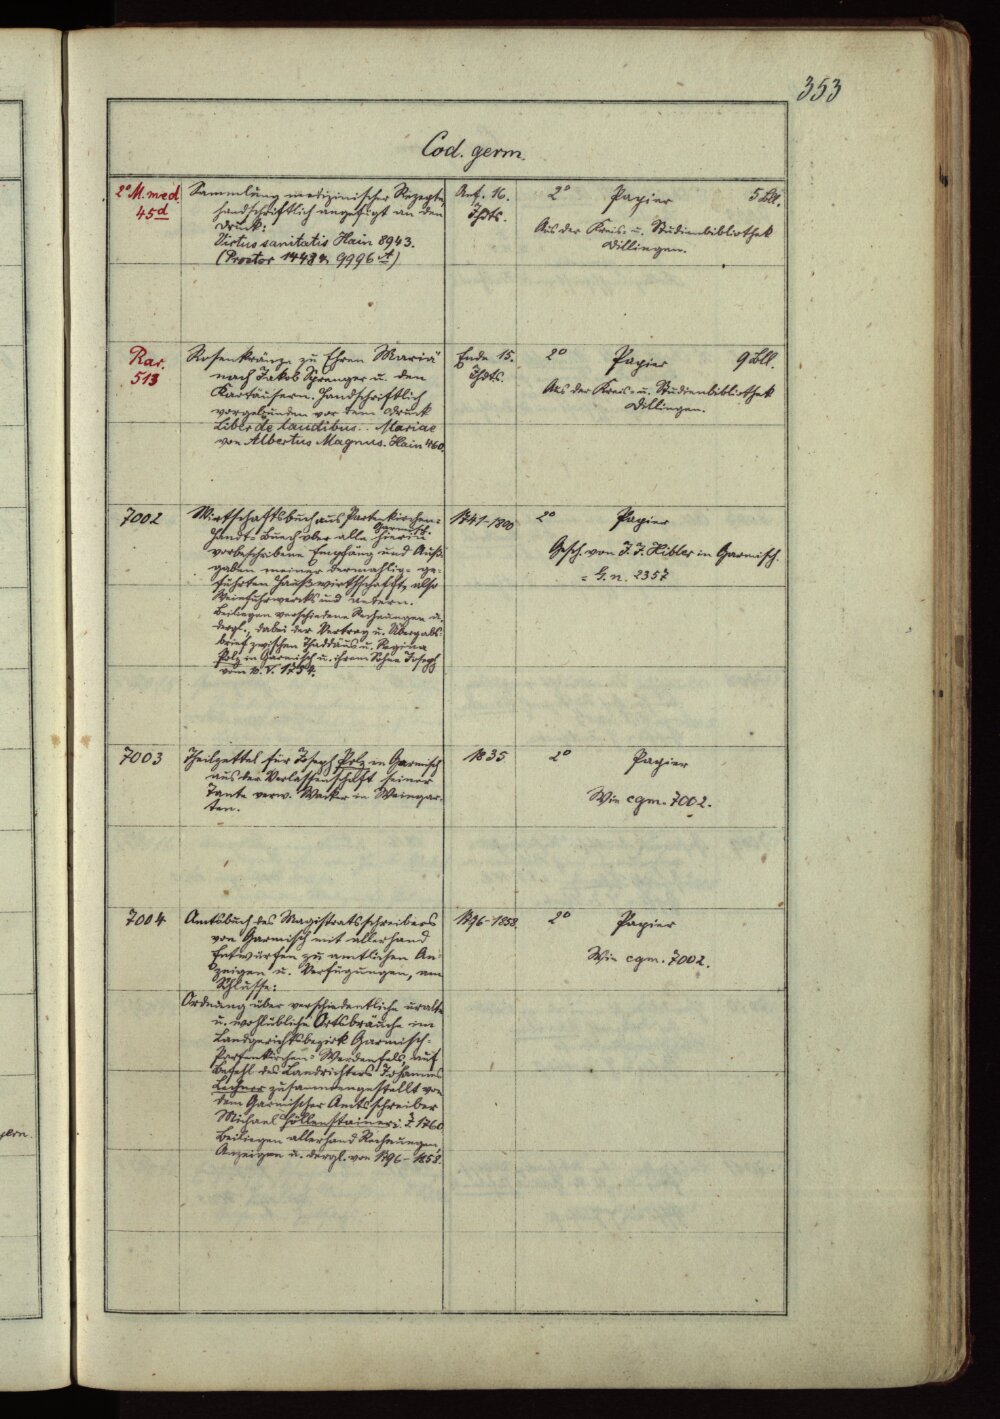 353
Cod. germ.
2° M. med. 45d
Sammlung medizinischer Rezepte,
handschriftlich angefügt an den
Druck:
Virtus sanitatis Hain 8943.
(Proctor 9996 A)
Anf. 16.
Jhdts.
2° Papier 5 Bll.
Aus der Kreis- u. Studienbibliothek
Dillingen.
Rar.
513
Rosenkränze zu Ehren Mariä
nach Jakob Sprenger u. den
Kartäusern. Handschriftlich
vorgebunden vor dem Druck
Liber de laudibus.. Mariae
von Albertus Magnus. Hain 460.
Ende 15.
Jhdts.
2° Papier 9 Bll.
Aus der Kreis- u. Studienbibliothek
Dillingen.
7002
Wirtschaftsbuch aus Partenkirchen-
Garmisch
Handt-Buech über alle hierin
vorbeschribene Empfäng und Auß-
gaben meiner dermahlig- ge-
führten Haußwirthschafft, also
Weinfuhrwercks und andern.
Beiliegen verschiedene Rechnungen u.
dergl., dabei der Vertrag u. Übergabs-
brief zwischen Thaddäus u. Regina
Polz in Garmisch u. ihrem Sohne Joseph
vom
1741-1800
2° Papier
Gesch. von J. J. Kibler in Garmisch.
= G. n. 2357
7003
Theilzettel für Joseph Polz in Garmisch
aus der Verlassenschaft seiner
Tante verw. in Weingar-
ten.
1835
2° Papier
Wie cgm. 7002.
7004
Amtsbuch des Magistratsschreibers
von Garmisch mit allerhand
Entwürfen zu amtlichen An-
zeigen u. Verfügungen, am
Schlusse:
Ordnung über verschiedentliche uralte
u. wohlübliche Ortsbräuche im
Landgerichtsbezirk Garmisch-
Partenkirchen-Werdenfels, auf
Befehl des Landrichters Johannes
Lechner zusammengestellt von
dem Garmischer Amtsschreiber
Michael Höllensteiner i. J. 1760
Beiliegen allerhand Rechnungen,
Anzeigen u. dergl. von 1796-1858.
1796-1858.
2° Papier
Wie cgm. 7002.